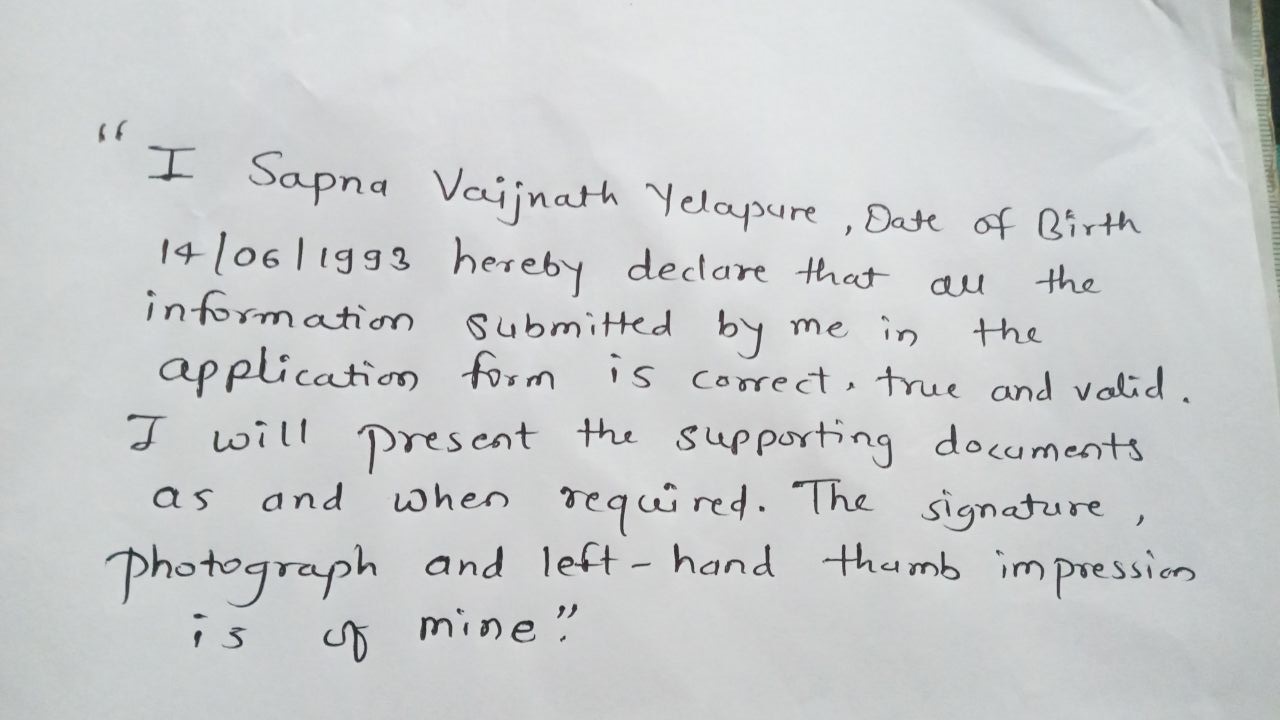 “ I Sapna Vaijnath Yelapure , Date of Birth
14/06/1993 hereby declare that all the
information submitted by me in the
application form is correct, true and valid.
I will present the supporting documents
as and when required. The signature,
photograph and left-hand thumb impression
is of mine.”